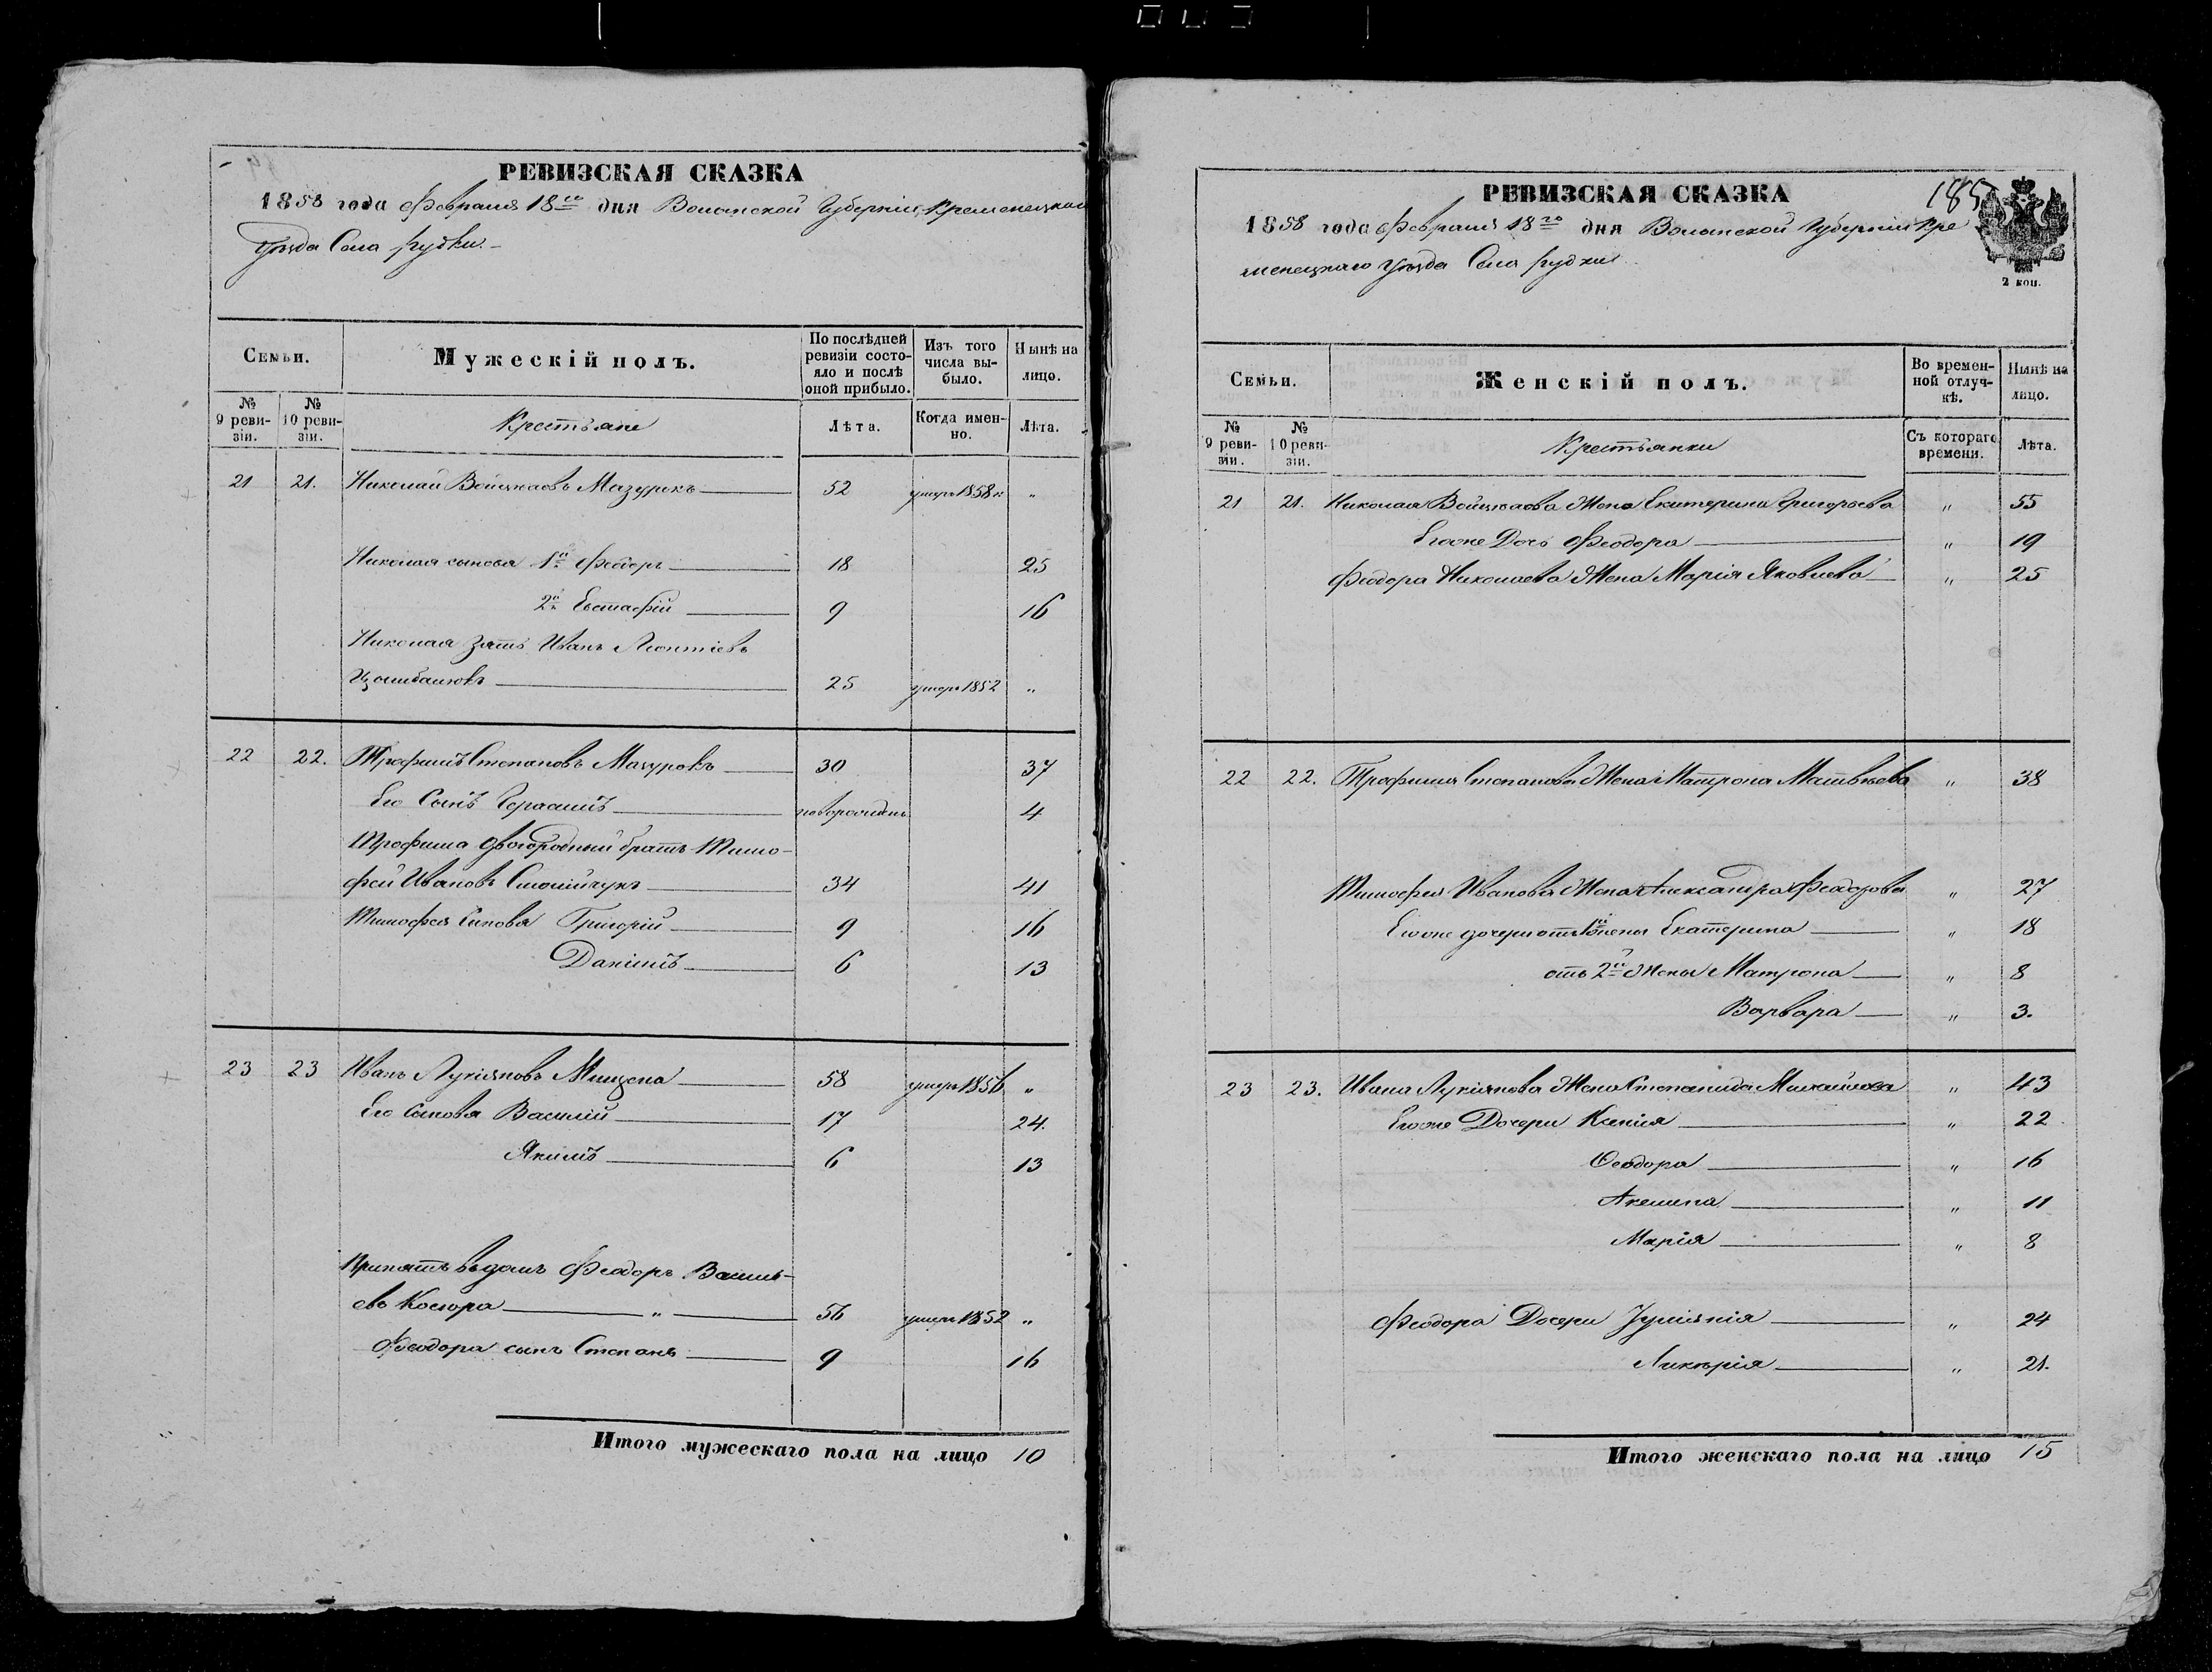 РЕВИЗСКАЯ СКАЗКА
1858 года Февраля 18го дня Волынской Губернии Кременецкаго
Уѣзда Села Рудки.
Семьи.
Мужескій полъ.
По послѣдней ревизіи состояло и послѣ оной прибыло.
Изъ того числа выбыло.
Нынѣ на лицо.
№ 9 ревизіи.
№ 10 ревизіи.
Крестьяне
Лѣта.
Когда именно.
Лѣта.
21 21. Николай Войцеховъ Мазурокъ 52 умеръ 1858 „
Николая сыновья 1й Феодоръ 18 25
2й Евстафій 9 16
Николая зять Иванъ Леонтіевъ
25 умеръ 1852 „
22 22. Трофимъ Степановъ Мазурокъ 30 37
Его Сынъ Герасимъ новорожденъ 4
Трофима двоюродный братъ Тимо-
фей Ивановъ 34 41
Тимофея Сыновья Григорій 9 16
Даніилъ 6 13
23 23 Иванъ Лукіяновъ Мищена 58 умеръ 1856 „
Его Сыновья Василій 17 24.
Якимъ 6 13
Принятъ въ домъ Феодоръ Василь-
евъ Косюра „ 56 умеръ 1852 „
Феодора сынъ Степанъ 9 16
Итого мужескаго пола на лицо 10
РЕВИЗСКАЯ СКАЗКА
185
1858 года Февраля 18го дня Волынской Губерніи Кре
менецкаго Уѣзда Села Рудки
2 коп.
Семьи.
Женскій полъ.
Во временной отлучкѣ.
Нынѣ на лицо.
№ 9 ревизіи.
№ 10 ревизіи.
Крестьянки
Съ котораго времени.
Лѣта.
21 21. Николая Войцехова Жена Екатерина Григорьева „ 55
Егоже Дочь Феодора „ 19
Феодора Николаева Жена Марія Яковлева „ 25
22 22. Трофима Степанова Жена Матрона Матвѣева „ 38
Тимофея Иванова Жена Александра Феодорова „ 27
Егоже дочери отъ 1й жены Екатерина „ 18
отъ 2й Жены Матрона „ 8
Варвара „ 3.
23 23. Ивана Лукіянова Жена Степанида Михайлова „ 43
Егоже Дочери Ксенія „ 22
Феодора „ 16
Акелина „ 11
Марія „ 8
Феодора Дочери Іуліянія „ 24
Ликерія „ 21.
Итого женскаго пола на лицо 15